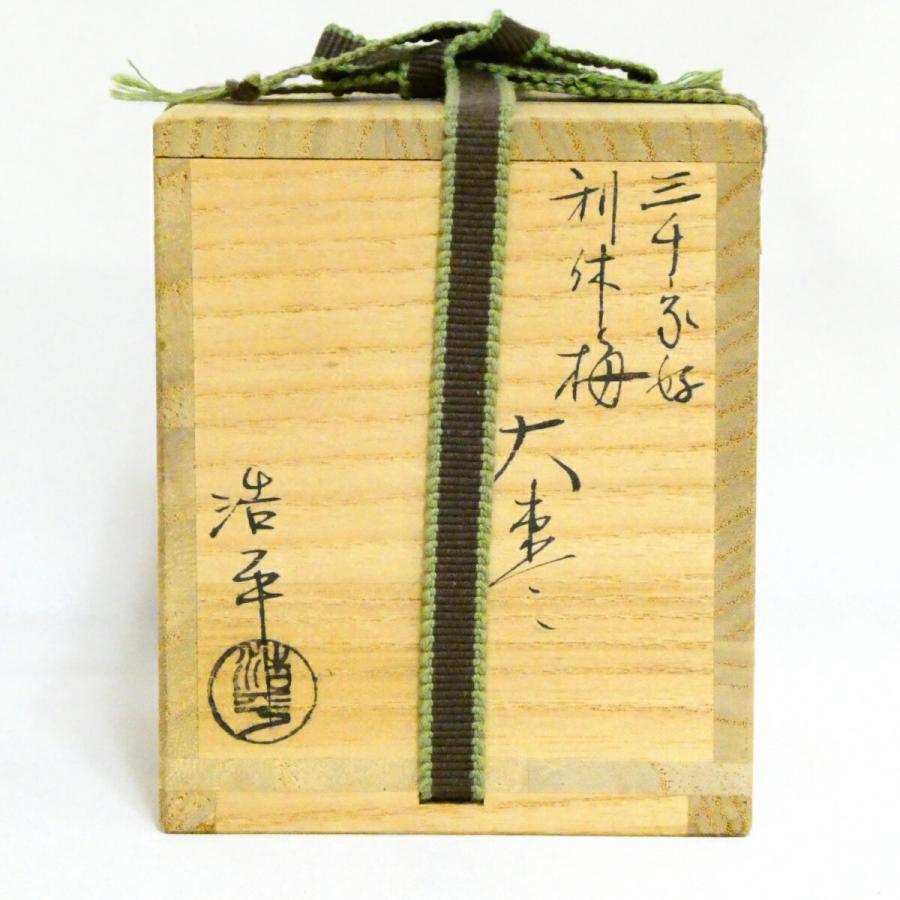 三千家好
利休梅
大棗
浩平